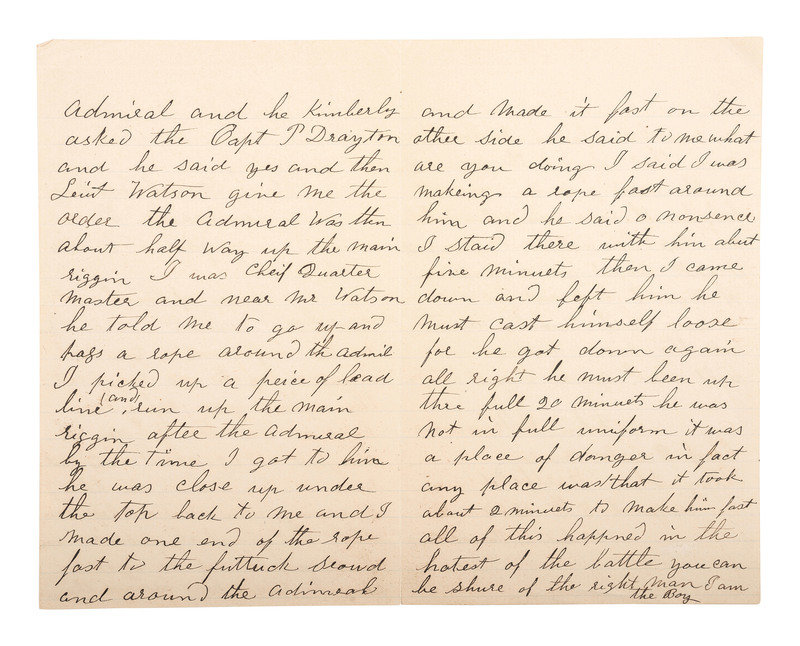 Admieal and he Kimberly
asked the Capt P Drayton
and he said yes and then
Leiut Watson give me the
order the Admiral was then
about half way up the main
riggin I was Cheif Quarter
Master and near Mr Watson
he told me to go up and
pass a rope around th admil
I picked up a peice of lead
line (and) run up the main
riggin after the admiral
by the time I got to him
he was close up under
the top back to me and I
made one end of the rope
fast to the futtuck
and around the adimeal
and made it fast on the
other side he said to me what
are you doing I said I was
makeing a rope fast around
him and he said o nonsence
I staid there with him abut
five minuets then I came
down and left him he
must cast himself loose
for he got down again
all right he must been up
thre full 20 minuets he was
not in full uniform it was
a place of danger in fact
any place was that it took
about 2 minuets to make him fast
all of this happned in the
hotest of the battle you can
be shure of the right man I am
the Boy